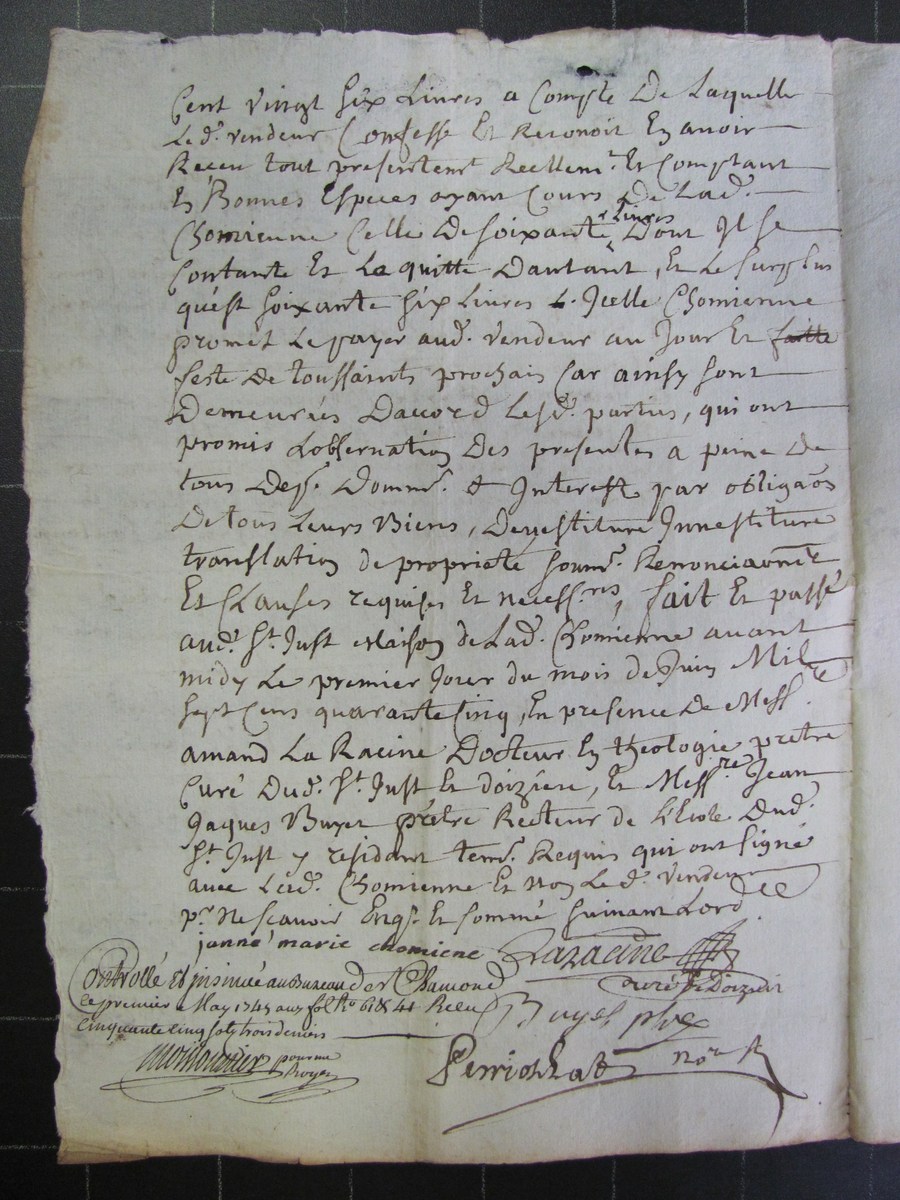 Cent vingt six Livres a Compte De Laquelle
Le d. vendeur Confesse Et Reconoit En avoir
Receu tout presentemt. Reellemt. Et Comptant
En Bonnes Especes ayant Cours De Lad.
Chomienne Celle De soixante Livres Dont Il se
Contante Et La quitte Dautant, Et Le surplus
qu'est soixante six Livres Icelle Chomienne
promet Le payer aud. vendeur au Jour Et faitte
feste De toussaints prochain Car ainsy sont
Demeurées Daccord Lesd. parties, qui ont
promis Lobservation Des presentes a peine De
tous Dep. Domm. & Interest par obligaon
De tous Leurs Biens, Devestiture Investiture
translation de propriete soum. Renonciaon
Et Clauses requises Et necess.res, fait Et passé
aud. St. Just Maison de Lad. Chomienne avant
midy Le premier Jour du mois de Juin Mil
sept cens quarante Cinq, En presence De Mess.re
amand La Racine Docteur En theologie prêtre
Curé Dud. St. Just Et doizieu, Et Mess.re Jean
Jaques Buyet prêtre Recteur de L'Ecole Dud.
St. Just y residant tem. Requis qui ont signé
avec Lad. Chomienne Et non Le d. vendeur
pr. Ne scavoir Enq. Et sommé suivant Lord.ce
janne marie chomiene Laracine
Controllé et insinué au Bureau de St Chamond curé de Doizieu
le premier May 1745 aux fol. Ro 61 & 41 Receu Buyet ptre
cinquante cinq sols trois deniers
pour mr Royer Perriochat Nore R